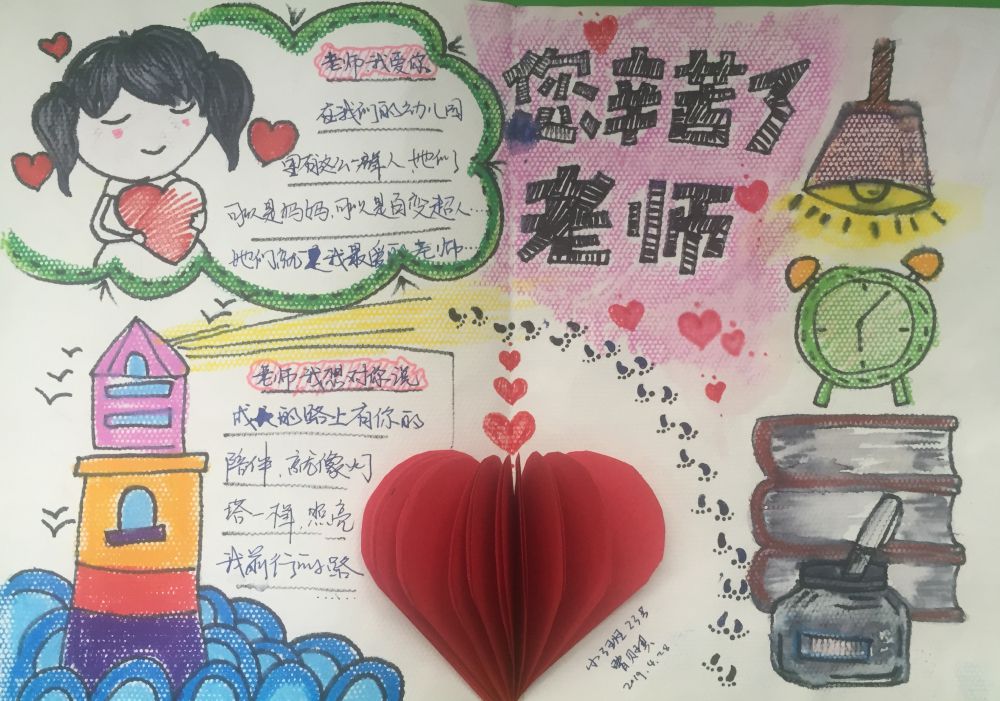 您辛苦了
老师
老师我爱你
在我们的幼儿园
里有这么一群人,她们
可以是妈妈,可以是百变超人...
她们就是我最爱的老师...
老师我想对你说
成长的路上有你的
陪伴,就像灯
塔一样,照亮
我前行的路
小3班 23号
2019.4.28